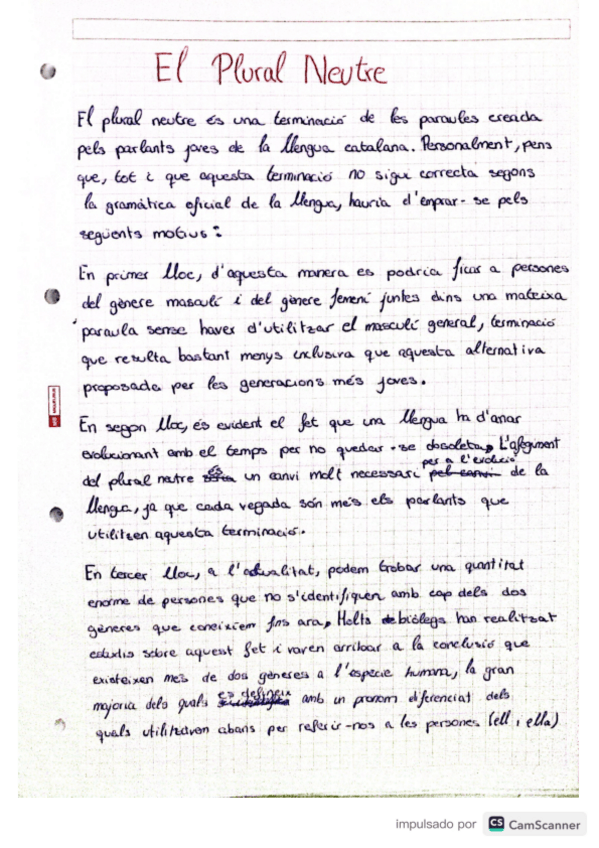 El Plural Neutre
El plural neutre és una terminació de les paraules creada
pels parlants joves de la llengua catalana. Personalment, pens
que, tot i que aquesta terminació no sigui correcta segons
la gramàtica oficial de la llengua, hauria d'emprar-se pels
següents motius:
En primer lloc, d'aquesta manera es podria ficar a persones
del gènere masculí i del gènere femení juntes dins una mateixa
paraula sense haver d'utilitzar el masculí general, terminació
que resulta bastant menys inclusiva que aquesta alternativa
proposada per les generacions més joves.
En segon lloc, és evident el fet que una llengua ha d'anar
evolucionant amb el temps per no quedar-se obsoleta, L'afegiment
del plural neutre és un canvi molt necessari per a l'evolució de la
llengua, ja que cada vegada són més els parlants que
utilitzen aquesta terminació.
En tercer lloc, a l'actualitat, podem trobar una quantitat
enorme de persones que no s'identifiquen amb cap dels dos
gèneres que coneixiem fins ara, Molts biòlegs han realitzat
estudis sobre aquest fet i varen arribar a la conclusió que
existeixen més de dos gèneres a l'espècie humana, la gran
majoria dels quals es defineix amb un pronom diferenciat dels
quals utilitzaven abans per referir-nos a les persones (ell i ella)
impulsado por CS CamScanner